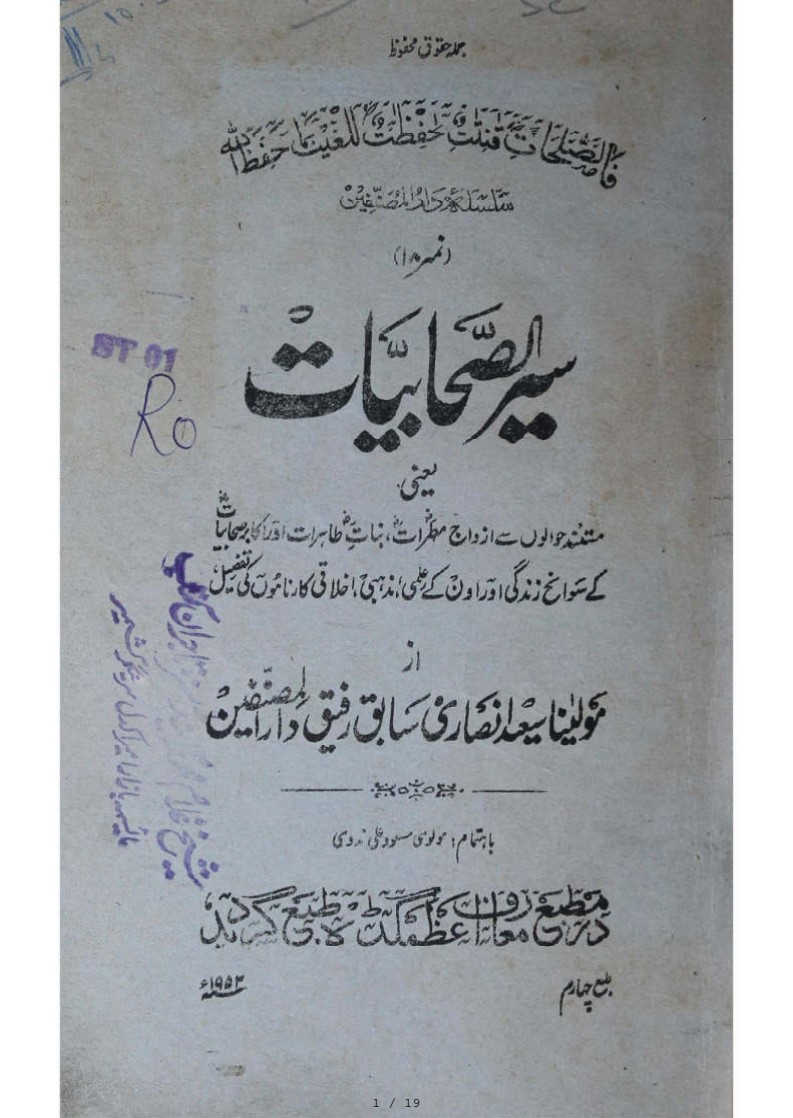 جملہ حقوق محفوظ
فالصّٰلحٰت قٰنتٰت حٰفظٰت للغیب بما حفظ اللہ
سلسلۂ دار المصنفین
(نمبر ۱۸)
سیر الصّحابیّات
یعنی
مستند حوالوں سے ازواج مطہراتؓ، بنات طاہراتؓ اور اکابر صحابیاتؓ
کے سوانح زندگی اور اون کے علمی، مذہبی، اخلاقی کارناموں کی تفصیل
از
مولینا سعید انصاری سابق رفیق دار المصنّفین
باہتمام: مولوی مسعود علی ندوی
در مطبع معارف اعظم گڈھ طبع گردید
طبع چہارم
۱۹۵۲ء
ST 01
Ro
شیخ غلام محمد تاجران کتب
بازار امیراکدل سرینگر کشمیر
1 / 19